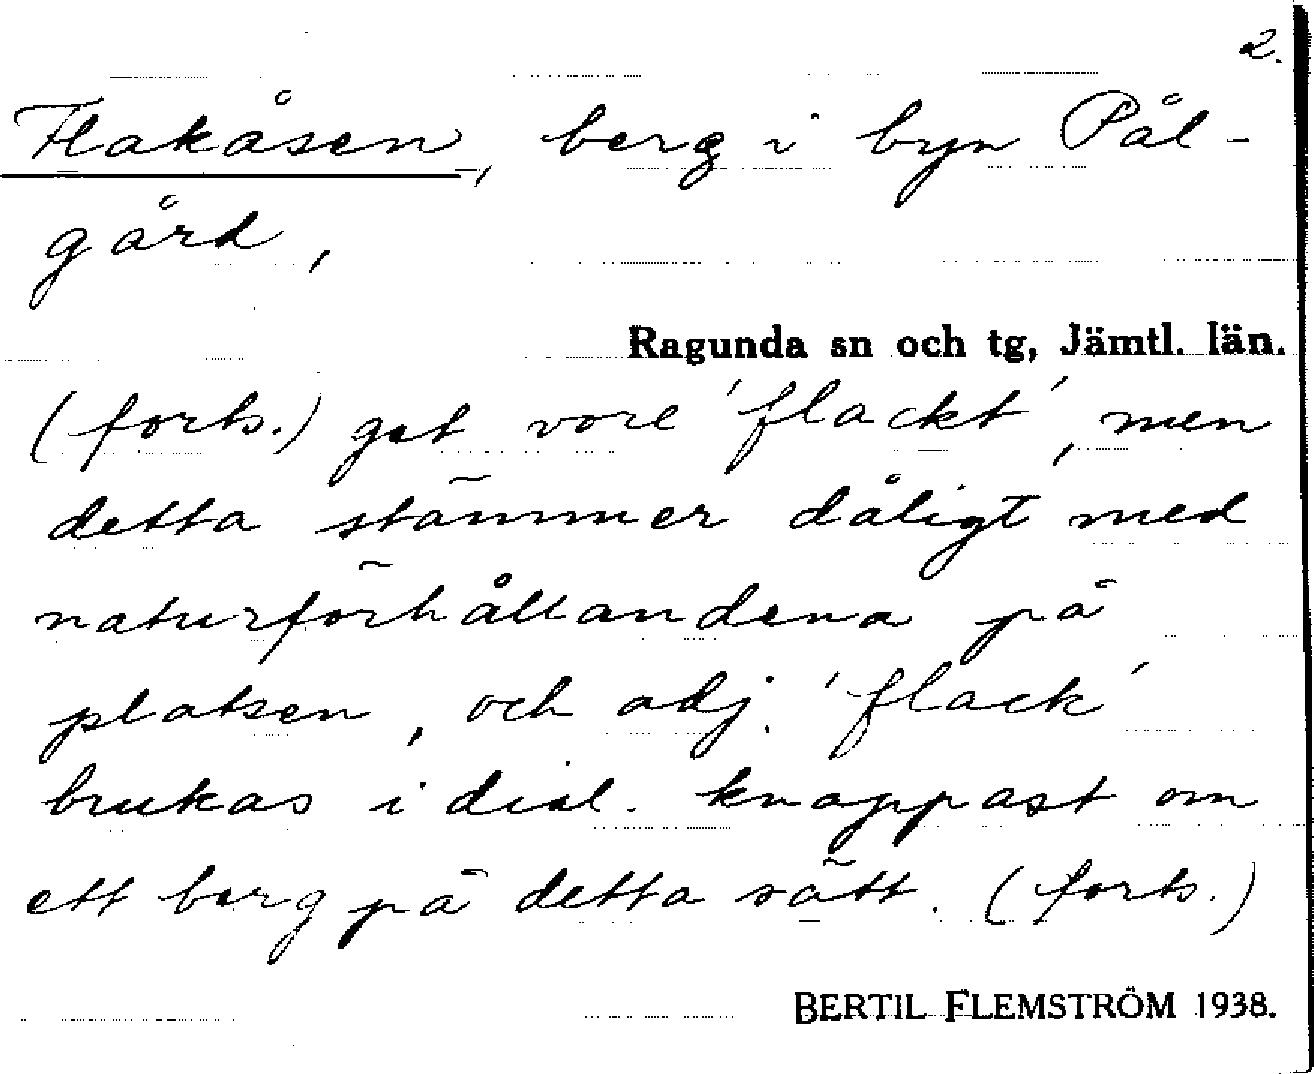 2.
Flakåsen, berg i byn Pål-
gård,
Ragunda sn och tg, Jämtl. län.
(forts.) get vore 'flackt', men
detta stämmer dåligt med
naturförhållandena på
platsen, och adj. 'flack'
brukas i dial. knappast om
ett berg på detta sätt. (forts.)
BERTIL FLEMSTRÖM 1938.